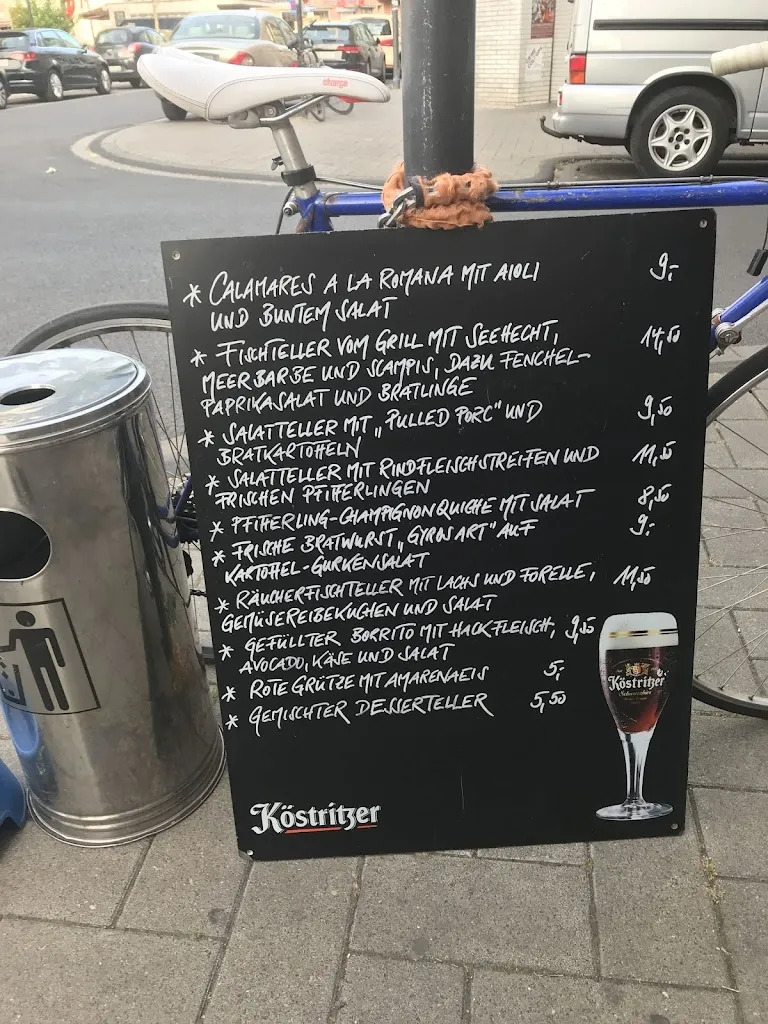 * CALAMARES A LA ROMANA MIT AIOLI 9,-
UND BUNTEM SALAT
* FISCHTELLER VOM GRILL MIT SEEHECHT, 14,50
MEERBARBE UND SCAMPIS, DAZU FENCHEL-
PAPRIKASALAT UND BRATLINGE
* SALATTELLER MIT „PULLED PORC" UND 9,50
BRATKARTOFFELN
* SALATTELLER MIT RINDFLEISCHSTREIFEN UND 11,50
FRISCHEN PFIFFERLINGEN
* PFIFFERLING-CHAMPIGNONQUICHE MIT SALAT 8,50
* FRISCHE BRATWURST „GYROS ART" AUF 9,-
KARTOFFEL-GURKENSALAT
* RÄUCHERFISCHTELLER MIT LACHS UND FORELLE, 11,50
GEMÜSEREIBEKUCHEN UND SALAT
* GEFÜLLTER BORRITO MIT HACKFLEISCH, 9,50
AVOCADO, KÄSE UND SALAT
* ROTE GRÜTZE MIT AMARENAEIS 5,-
* GEMISCHTER DESSERTELLER 5,50
Köstritzer
Schwarzbier
Köstritzer